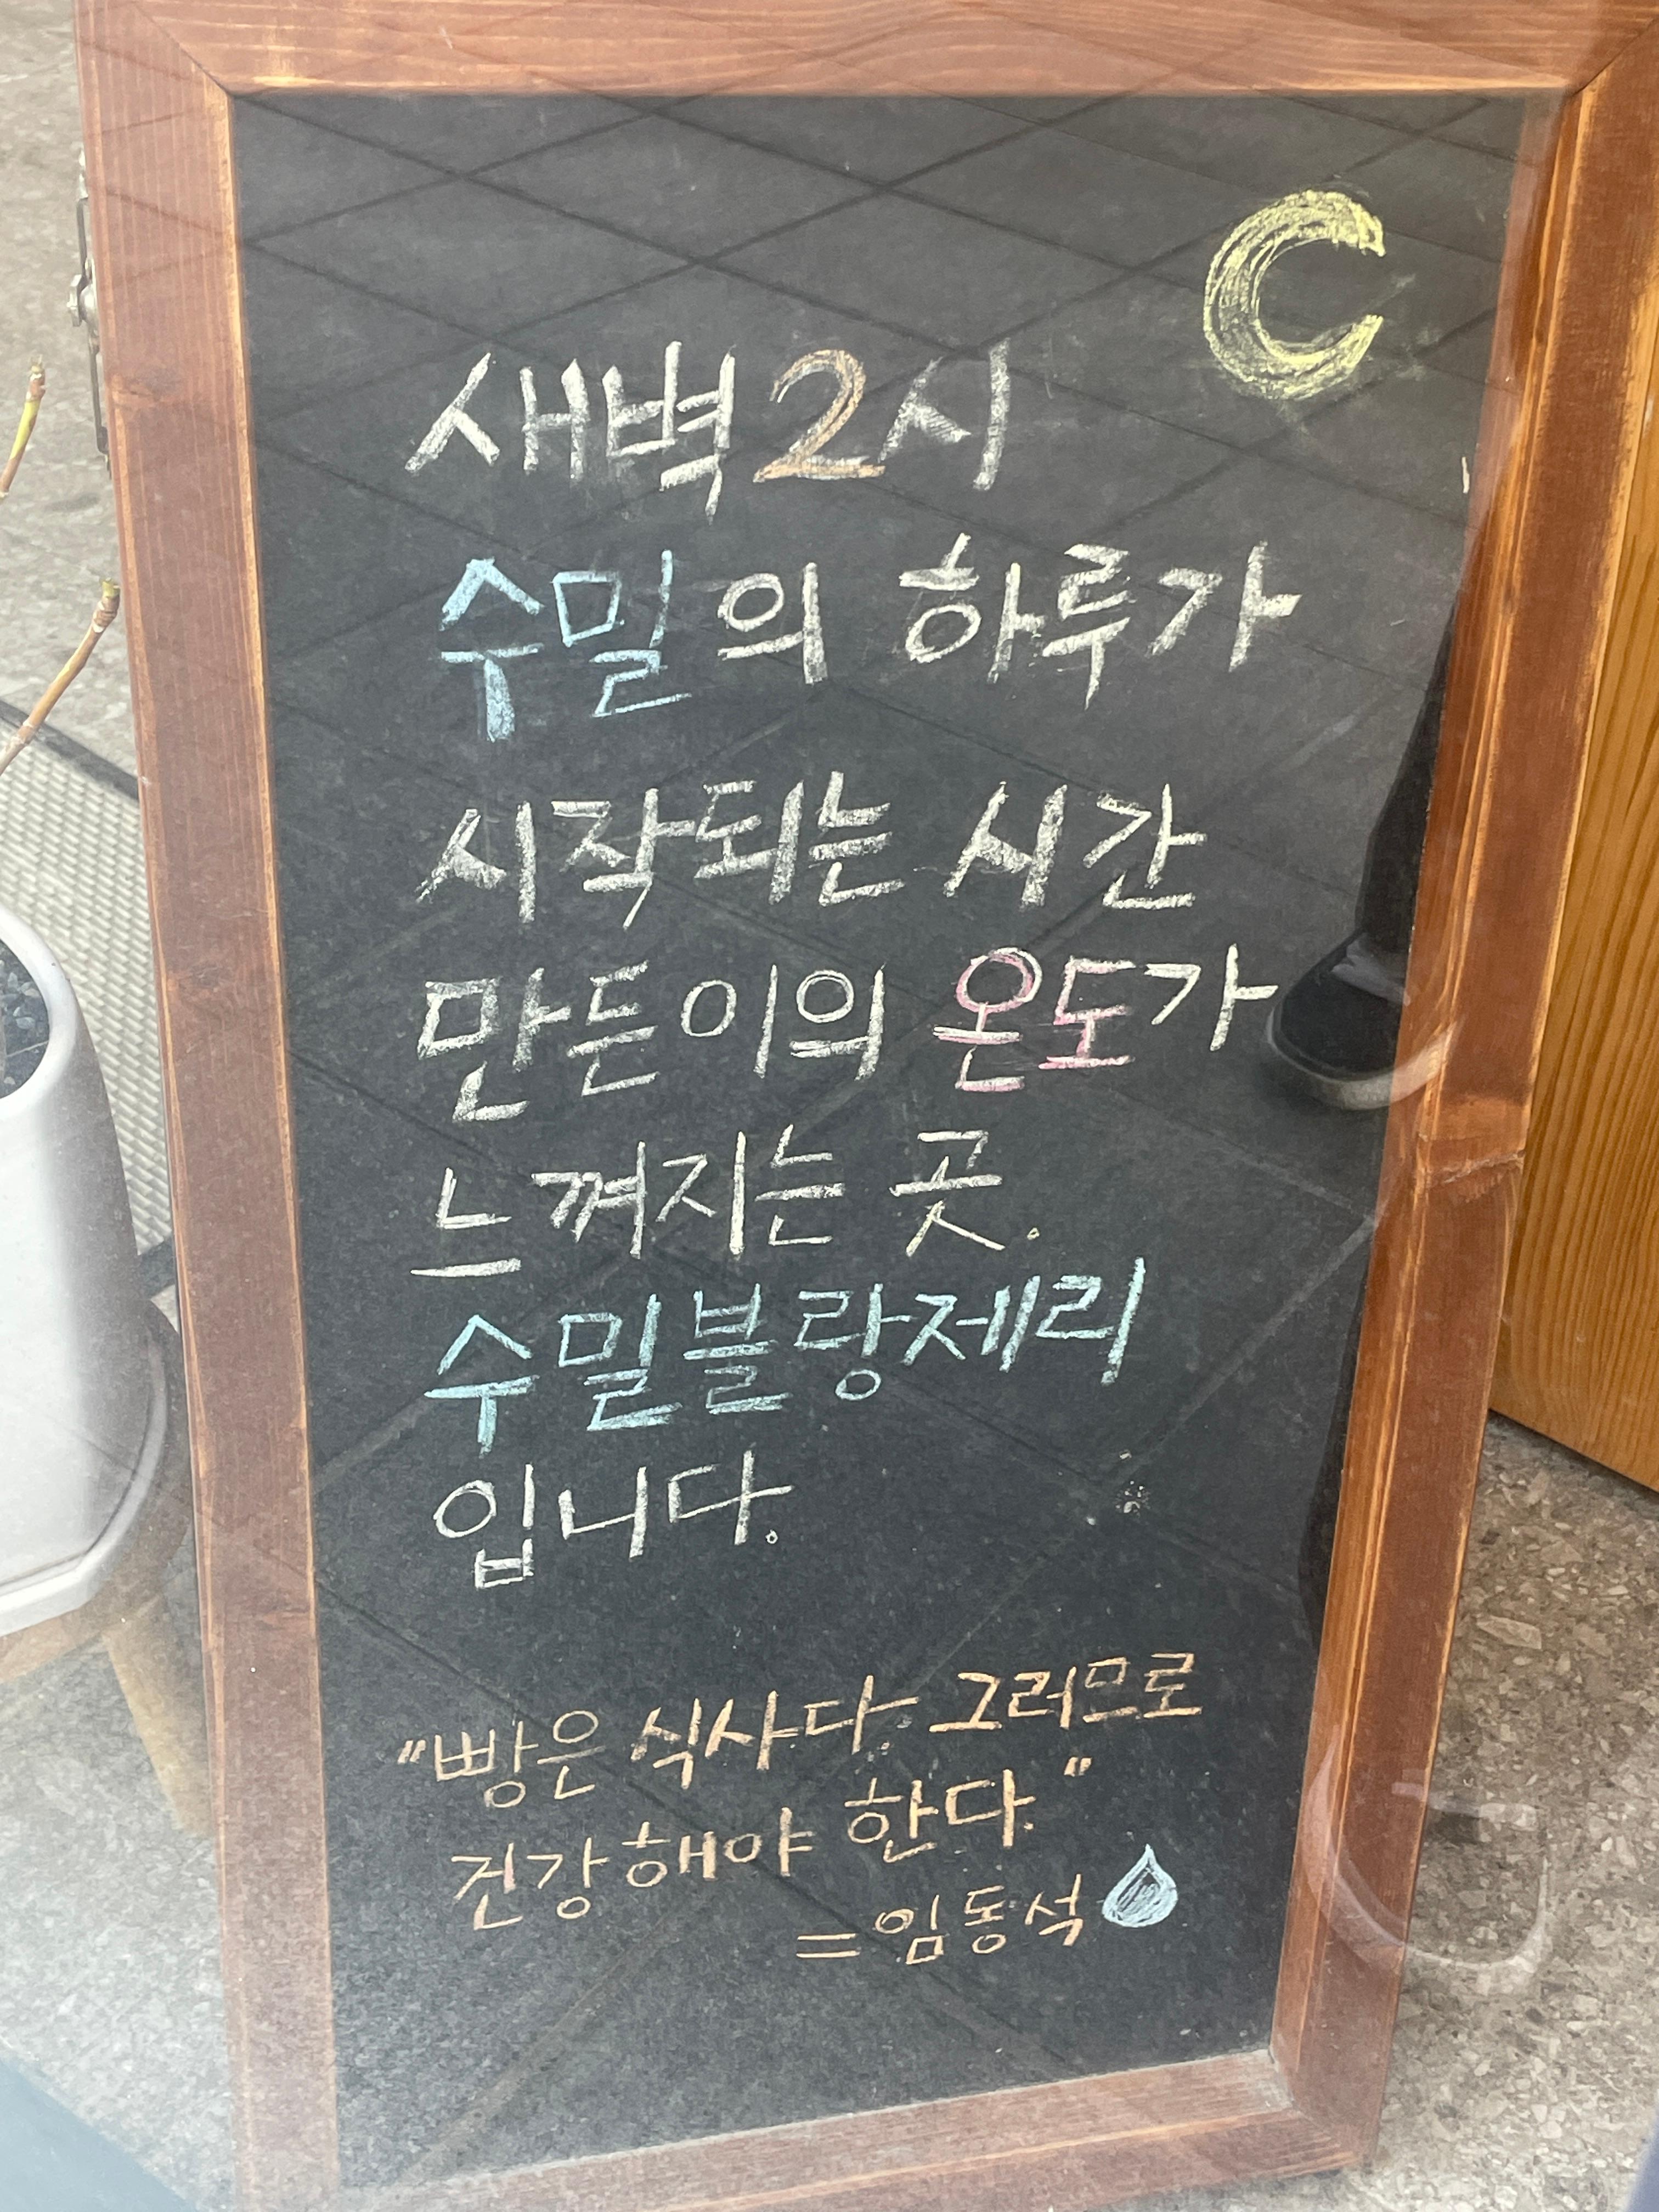 새벽 2시
수밀의 하루가
시작되는 시간
만든이의 온도가
느껴지는 곳.
수밀블랑제리
입니다.
"빵은 식사다. 그러므로
건강해야 한다."
= 임동석